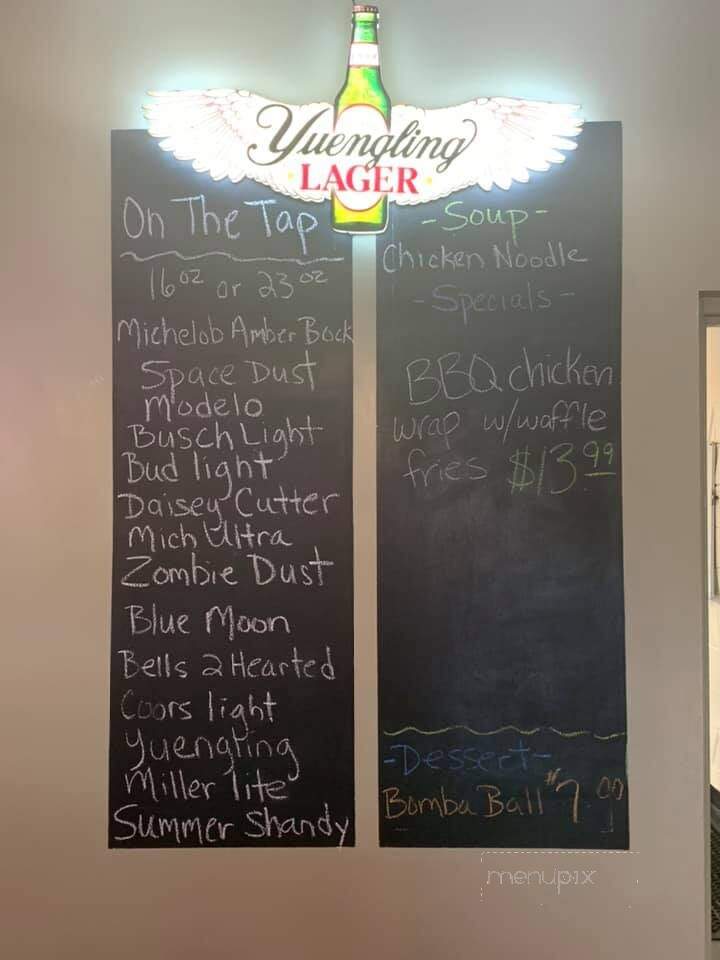 Yuengling
LAGER
On The Tap
16oz or 23oz
Michelob Amber Bock
Space Dust
Modelo
Busch Light
Bud light
Daisey Cutter
Mich Ultra
Zombie Dust
Blue Moon
Bells 2 Hearted
Coors light
Yuengling
Miller lite
Summer Shandy
-Soup-
Chicken Noodle
-Specials-
BBQ chicken
wrap w/waffle
fries $13.99
-Dessert-
Bomba Ball $7.00
menupix